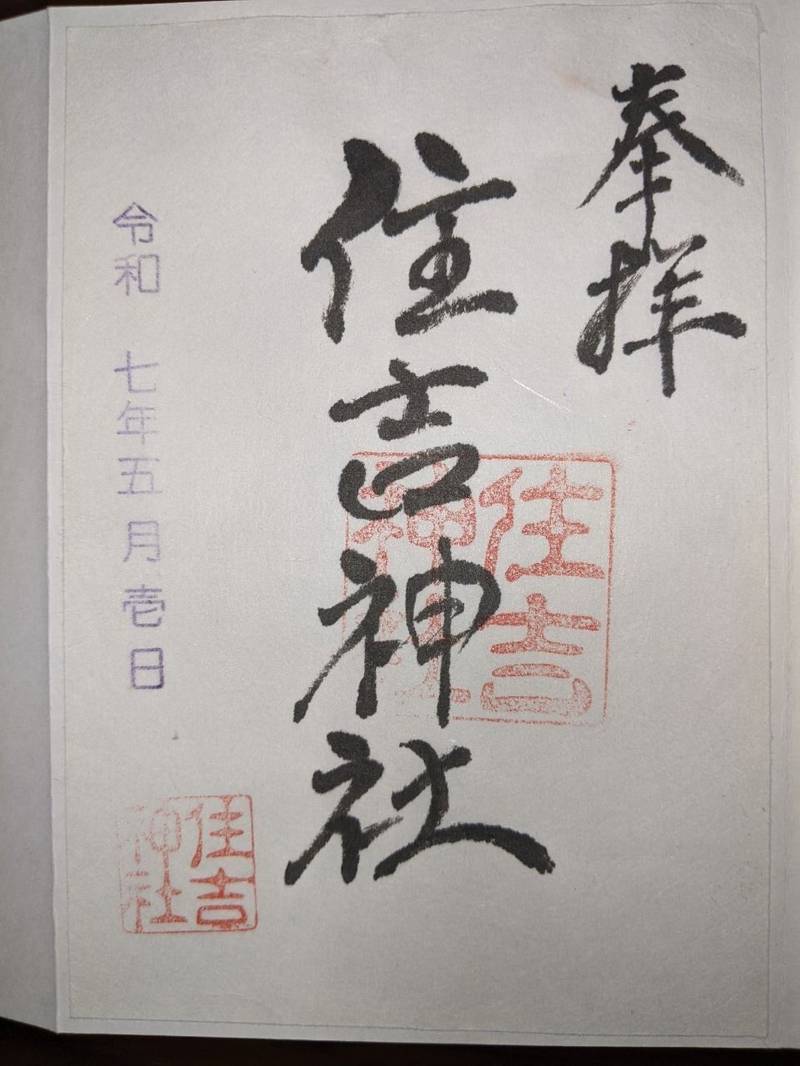 奉拝
住吉神社
住吉神社
令和 七年五月壱日
住吉神社